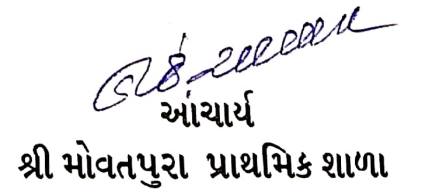 આચાર્ય
શ્રી મોવતપુરા પ્રાથમિક શાળા